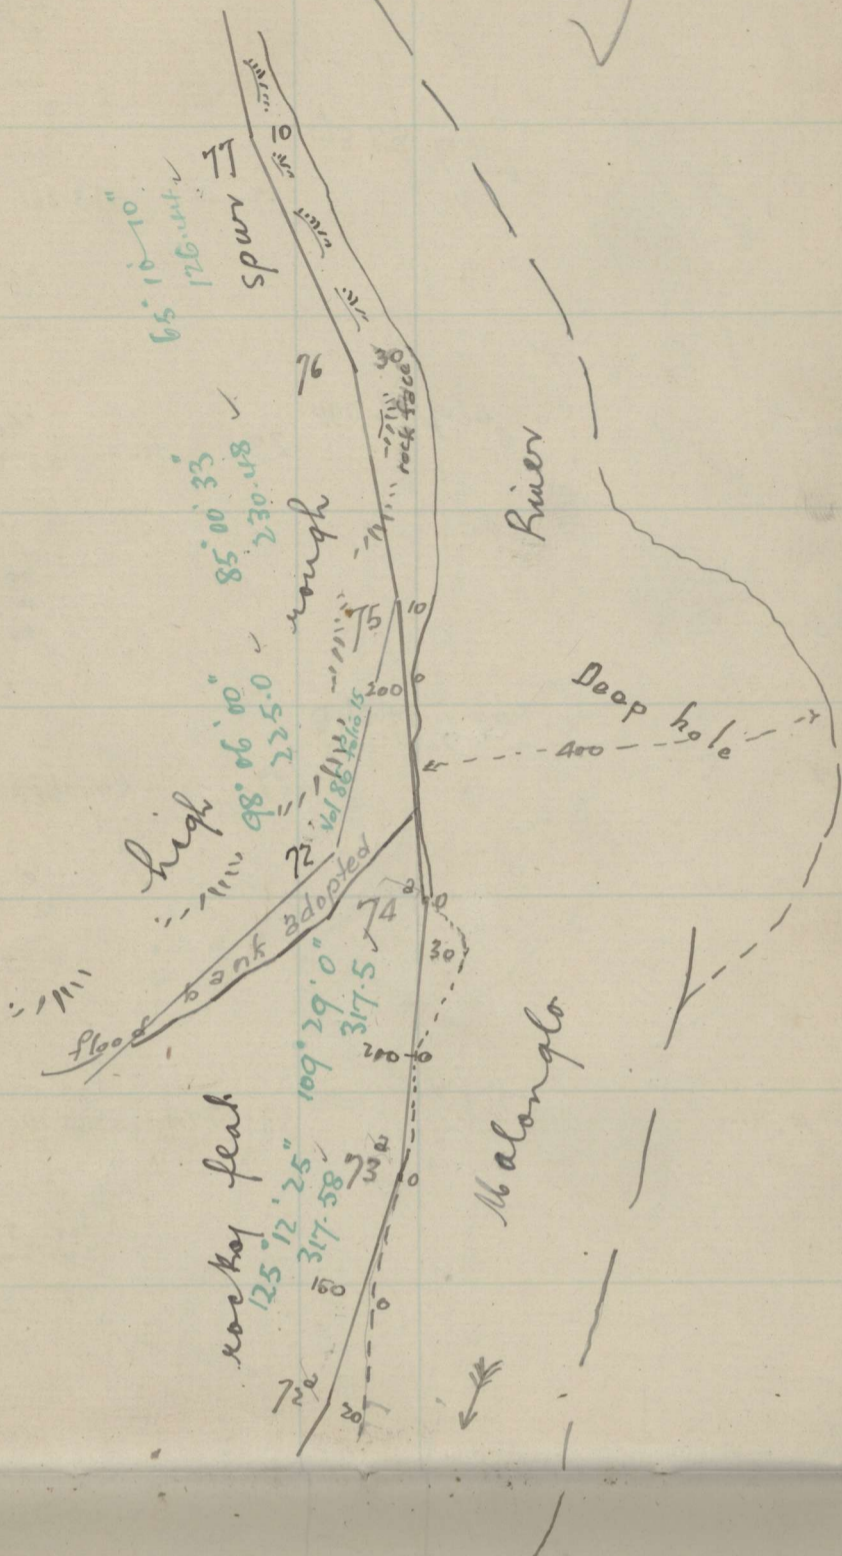 10
77
spur
65° 10' 10"
126
76
30
rock face
85° 00' 33"
230.48
rough
River
75
10
200
0
98° 06' 00"
225.0
Vol 86 folio 15
Deep hole
400
high
72
bank adopted
flood
74
0
30
109° 29' 0"
317.5
200
0
Molonglo
rocky flat
73a
0
125° 12' 25"
317.58
160
0
72a
20